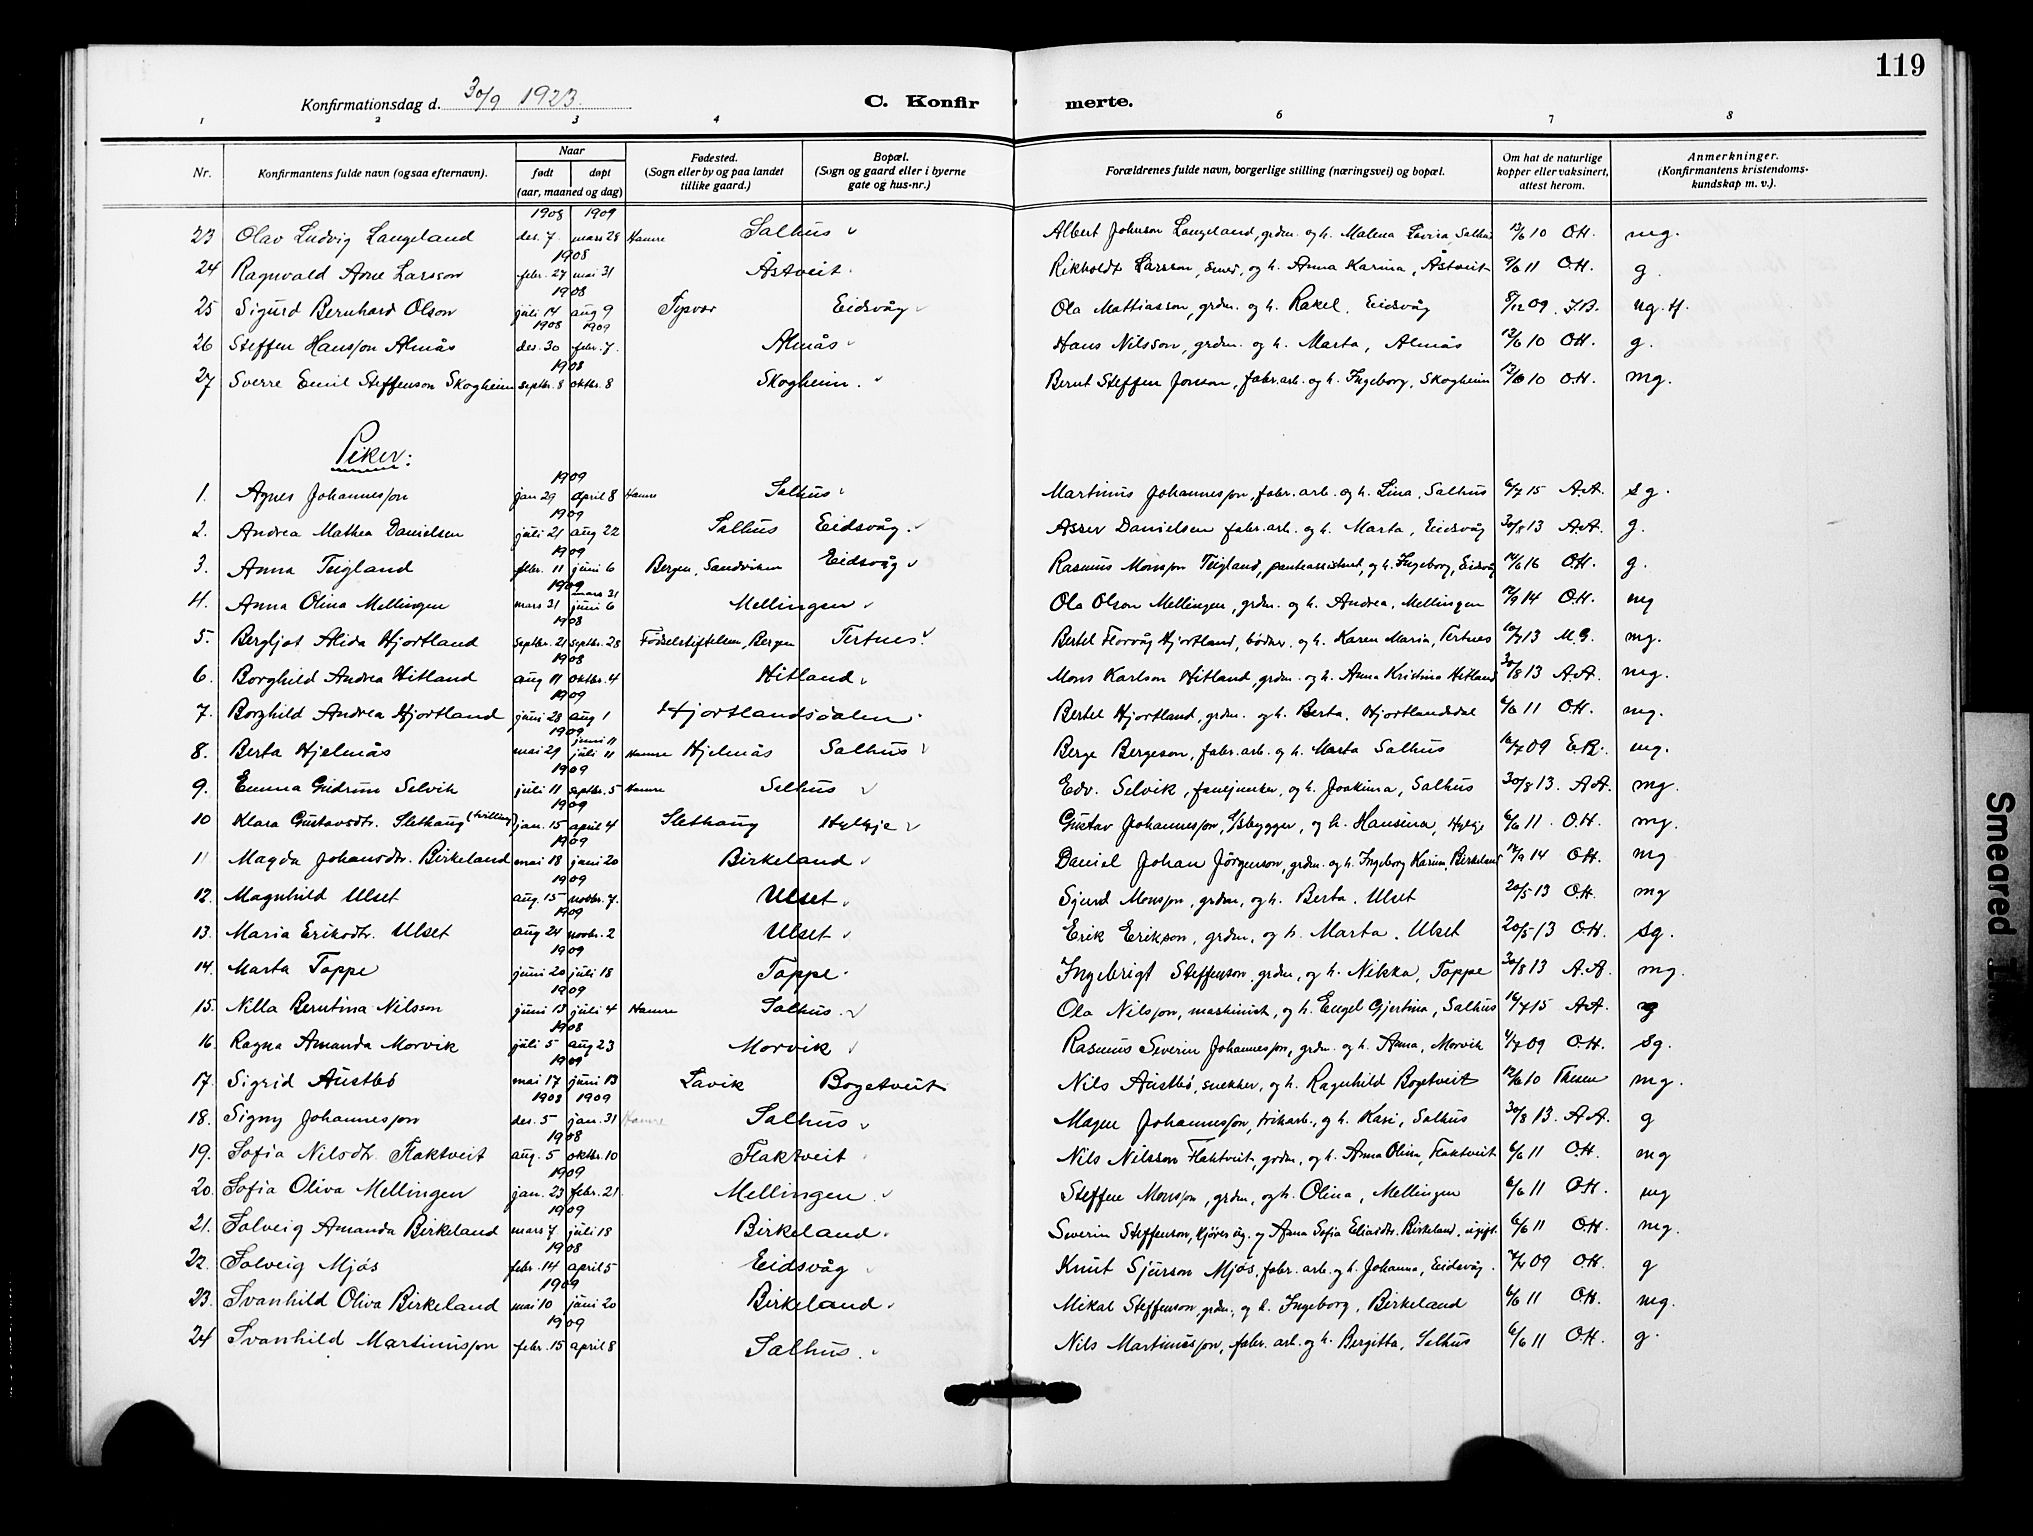 119
Konfirmationsdag d. 30/9 1923.
C. Konfir merte.
1 2 3 4 6 7 8
Nr. Konfirmantens fulde navn (ogsaa efternavn). Naar født døpt (aar, maaned og dag) Fødested. (Sogn eller by og paa landet tillike gaard.) Bopæl. (Sogn og gaard eller i byerne gate og hus-nr.) Forældrenes fulde navn, borgerlige stilling (næringsvei) og bopæl. Om hat de naturlige kopper eller vaksinert, attest herom. Anmerkninger. (Konfirmantens kristendoms-kundskap m. v.).
1908 1909
23 Olav Ludvig Langeland des. 7 mars 28 Hamre Salhus Albert Johnson Langeland, grdm. og h. Malena Lovisa, Salhus 10 O.H. mg.
1908
24 Ragnvald Arne Larsson febr. 27 mai 31 Åstveit Rikholdt Larsson, smed, og h. Anna Karina, Åstveit 11 O.H. g.
1908
25 Sigurd Bernhard Olson juli 14 aug 9 Tysvær Eidsvåg Ola Mattiasson, grdm. og h. Rakel, Eidsvåg 8/12 09 J.B. ug. H.
1908 1909
26 Steffen Hansson Almås des. 30 febr. 7. Almås Hans Nilsson, grdm. og h. Marta, Almås 10 O.H. g.
1908
27 Sverre Emil Steffenson Skogheim septbr. 8 oktbr. 8 Skogheim. Bernt Steffen Jonson, fabr. arb. og h. Ingeborg, Skogheim 10 O.H. mg.
Piker:
1909
1. Agnes Johannesson jan 29 april 8 Hamre Salhus Martinus Johannesson, fabr. arb. og h. Lina, Salhus 6/7 15 A.A. sg.
1909
2. Andrea Mathea Danielsen juli 21 aug 22 Salhus Eidsvåg. Asser Danielsen fabr. arb. og h. Marta, Eidsvåg 30/8 13 A.A. g.
1909
3. Anna Teigland febr. 11 juni 6 Bergen, Sandviken Eidsvåg Rasmus Monsson Teigland, panteassistent, og h. Ingeborg, Eidsvåg 16 O.H. g.
1909 mars 31
4. Anna Olina Mellingen mars 31 juni 6 Mellingen Ola Olson Mellingen, grdm. og h. Andrea, Mellingen 14 O.H. mg
1908
5. Bergljot Alida Hjortland septbr. 21 septbr. 28 Fødselstiftelsen, Bergen Tertnes. Bertel Florvåg Hjortland, bødker, og h. Karen Maria, Tertnes 13 M.G. mg.
1908
6. Borghild Andrea Hitland aug 11 oktbr. 4 Hitland Mons Karlson Hitland, grdm. og h. Anna Kristina Hitland 30/8 13 A.A. mg.
1909
7. Borghild Andrea Hjortland juni 28 aug 1 Hjortlandsdalen Bertel Hjortland, grdm. og h. Berta, Hjortlandsdal 6/6 11 O.H. mg.
1909 juni 11
8. Berta Hjelmås mai 29 juli 11 Hamre Hjelmås Salhus Berge Bergeson, fabr. arb. og h. Marta Salhus 09 E.R. mg.
1909
9. Emma Gudrun Selvik juli 11 septbr. 5 Hamre Salhus Edv. Selvik, fanejunker, og h. Joakima, Salhus 30/8 13. A.A. mg.
1909
10 Klara Gustavsdtr. Slethaug (tvilling) jan. 15 april 4 Slethaug Hylkje Gustav Johannesson, h. Hansina, Hylkje 6/6 11 O.H. mg.
1909
11 Magda Johansdtr. Birkeland mai 18 juni 20 Birkeland Daniel Johan Jörgenson, grdm. og h. Ingeborg Karina, Birkeland 14 O.H. mg
1909
12. Magnhild Ulset aug. 15 novbr. 7. Ulset Sjurd Monsson, grdm, og h. Berta, Ulset 20/5 13 O.H. mg
1909
13. Maria Eriksdtr. Ulset aug 24 novbr. 2 Ulset Erik Erikson, grdm, og h. Marta, Ulset 20/5 13 O.H. sg.
1909
14. Marta Toppe juni 20 juli 18 Toppe Ingebrigt Steffenson, grdm, og h. Nikka, Toppe 30/8 13 A.A. mg.
1909
15. Nilla Berntina Nilsson juni 13 juli 4 Hamre Salhus Ola Nilsson, maskinist, og h. Engel Gjertina, Salhus 15 A.A. g
1908
16. Ragna Amanda Morvik juli 5 aug 23 Morvik Rasmus Severin Johannesson, grdm. og h. Anna, Morvik 09 O.H. sg.
1909
17. Sigrid Austbø mai 17 juni 13 Lavik Bogetveit Nils Austbø, snekker, og h. Ragnhild Bogetveit 10 mg.
1908 1909
18. Signy Johannesson des. 5 jan. 31 Hamre Salhus Magne Johannesson, trikarb., og h. Kari, Salhus 30/8 13. A.A. g
1908
19. Sofia Nilsdtr. Flaktveit aug. 5 oktbr. 10 Flaktveit Nils Nilsson Flaktveit, grdm, og h. Anna Olina, Flaktveit 6/6 11 O.H. mg
1909
20. Sofia Oliva Mellingen jan. 23 febr. 21 Mellingen Steffen Monsson, grdm, og h. Olina, Mellingen 6/6 11 O.H. mg
1909
21. Solveig Amanda Birkeland mars 7 juli 18 Birkeland Severin Steffenson, og Anna Sofia Eliasdtr. Birkeland, ugift. 6/6 11 O.H. mg.
1908
22. Solveig Mjøs febr. 14 april 5 Eidsvåg Knut Sjurson Mjøs, fabr. arb. og h. Johanna, Eidsvåg 09 O.H. g
1909
23. Svanhild Oliva Birkeland mai 10 juni 20 Birkeland Mikal Steffenson, grdm, og h. Ingeborg, Birkeland 6/6 11 O.H. mg.
1909
24 Svanhild Martinusson febr. 15 april 8 Salhus Nils Martinusson, fabr. arb. og h. Bergitta, Salhus 6/6 11 O.H. g.
Smeared